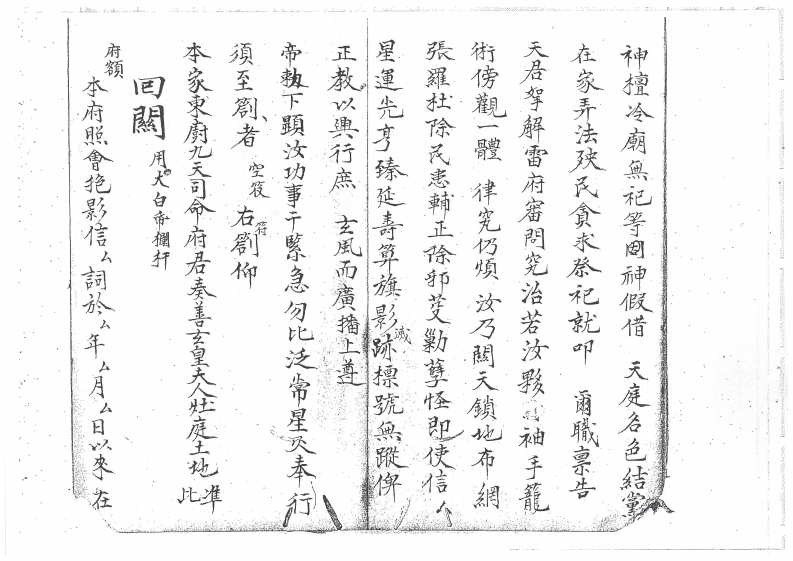 神壇冷廟無祀等因神假借　天庭各色結黨
在家弄法殃民貪求祭祀就叩　爾職稟告
天君拏解雷府審問究治若汝夥　袖手籠
術傍觀一體　律究仍煩　汝乃關天鎖地布網
張羅杜除民患輔正除邪芟勦孽怪即使信厶
星運光亨臻延壽算旗影滅跡摽號無蹤俾
正教以興行庶　玄風而廣播上尊
帝勅下顯汝功事干緊急勿比泛常星火奉行
須至劄者　空後符　右劄仰
本家東廚九天司命府君奏善玄皇夫人灶庭土地準此
回關　用大白帝欄扞
府額
本府照會抱影信厶詞於厶年厶月厶日以來在